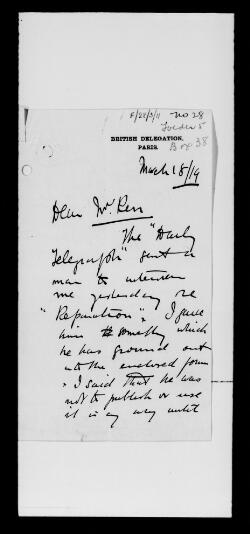 F/28/3/11 No 28
Folder 5
Box 38
BRITISH DELEGATION,
PARIS.
March 18/19
Dear Mr. Kerr
The "Daily
Telegraph" sent a
man to interview
me yesterday re
"Reparation". I gave
him something which
he has ground out
into the enclosed form
& I said that he was
not to publish or use
it in any way until